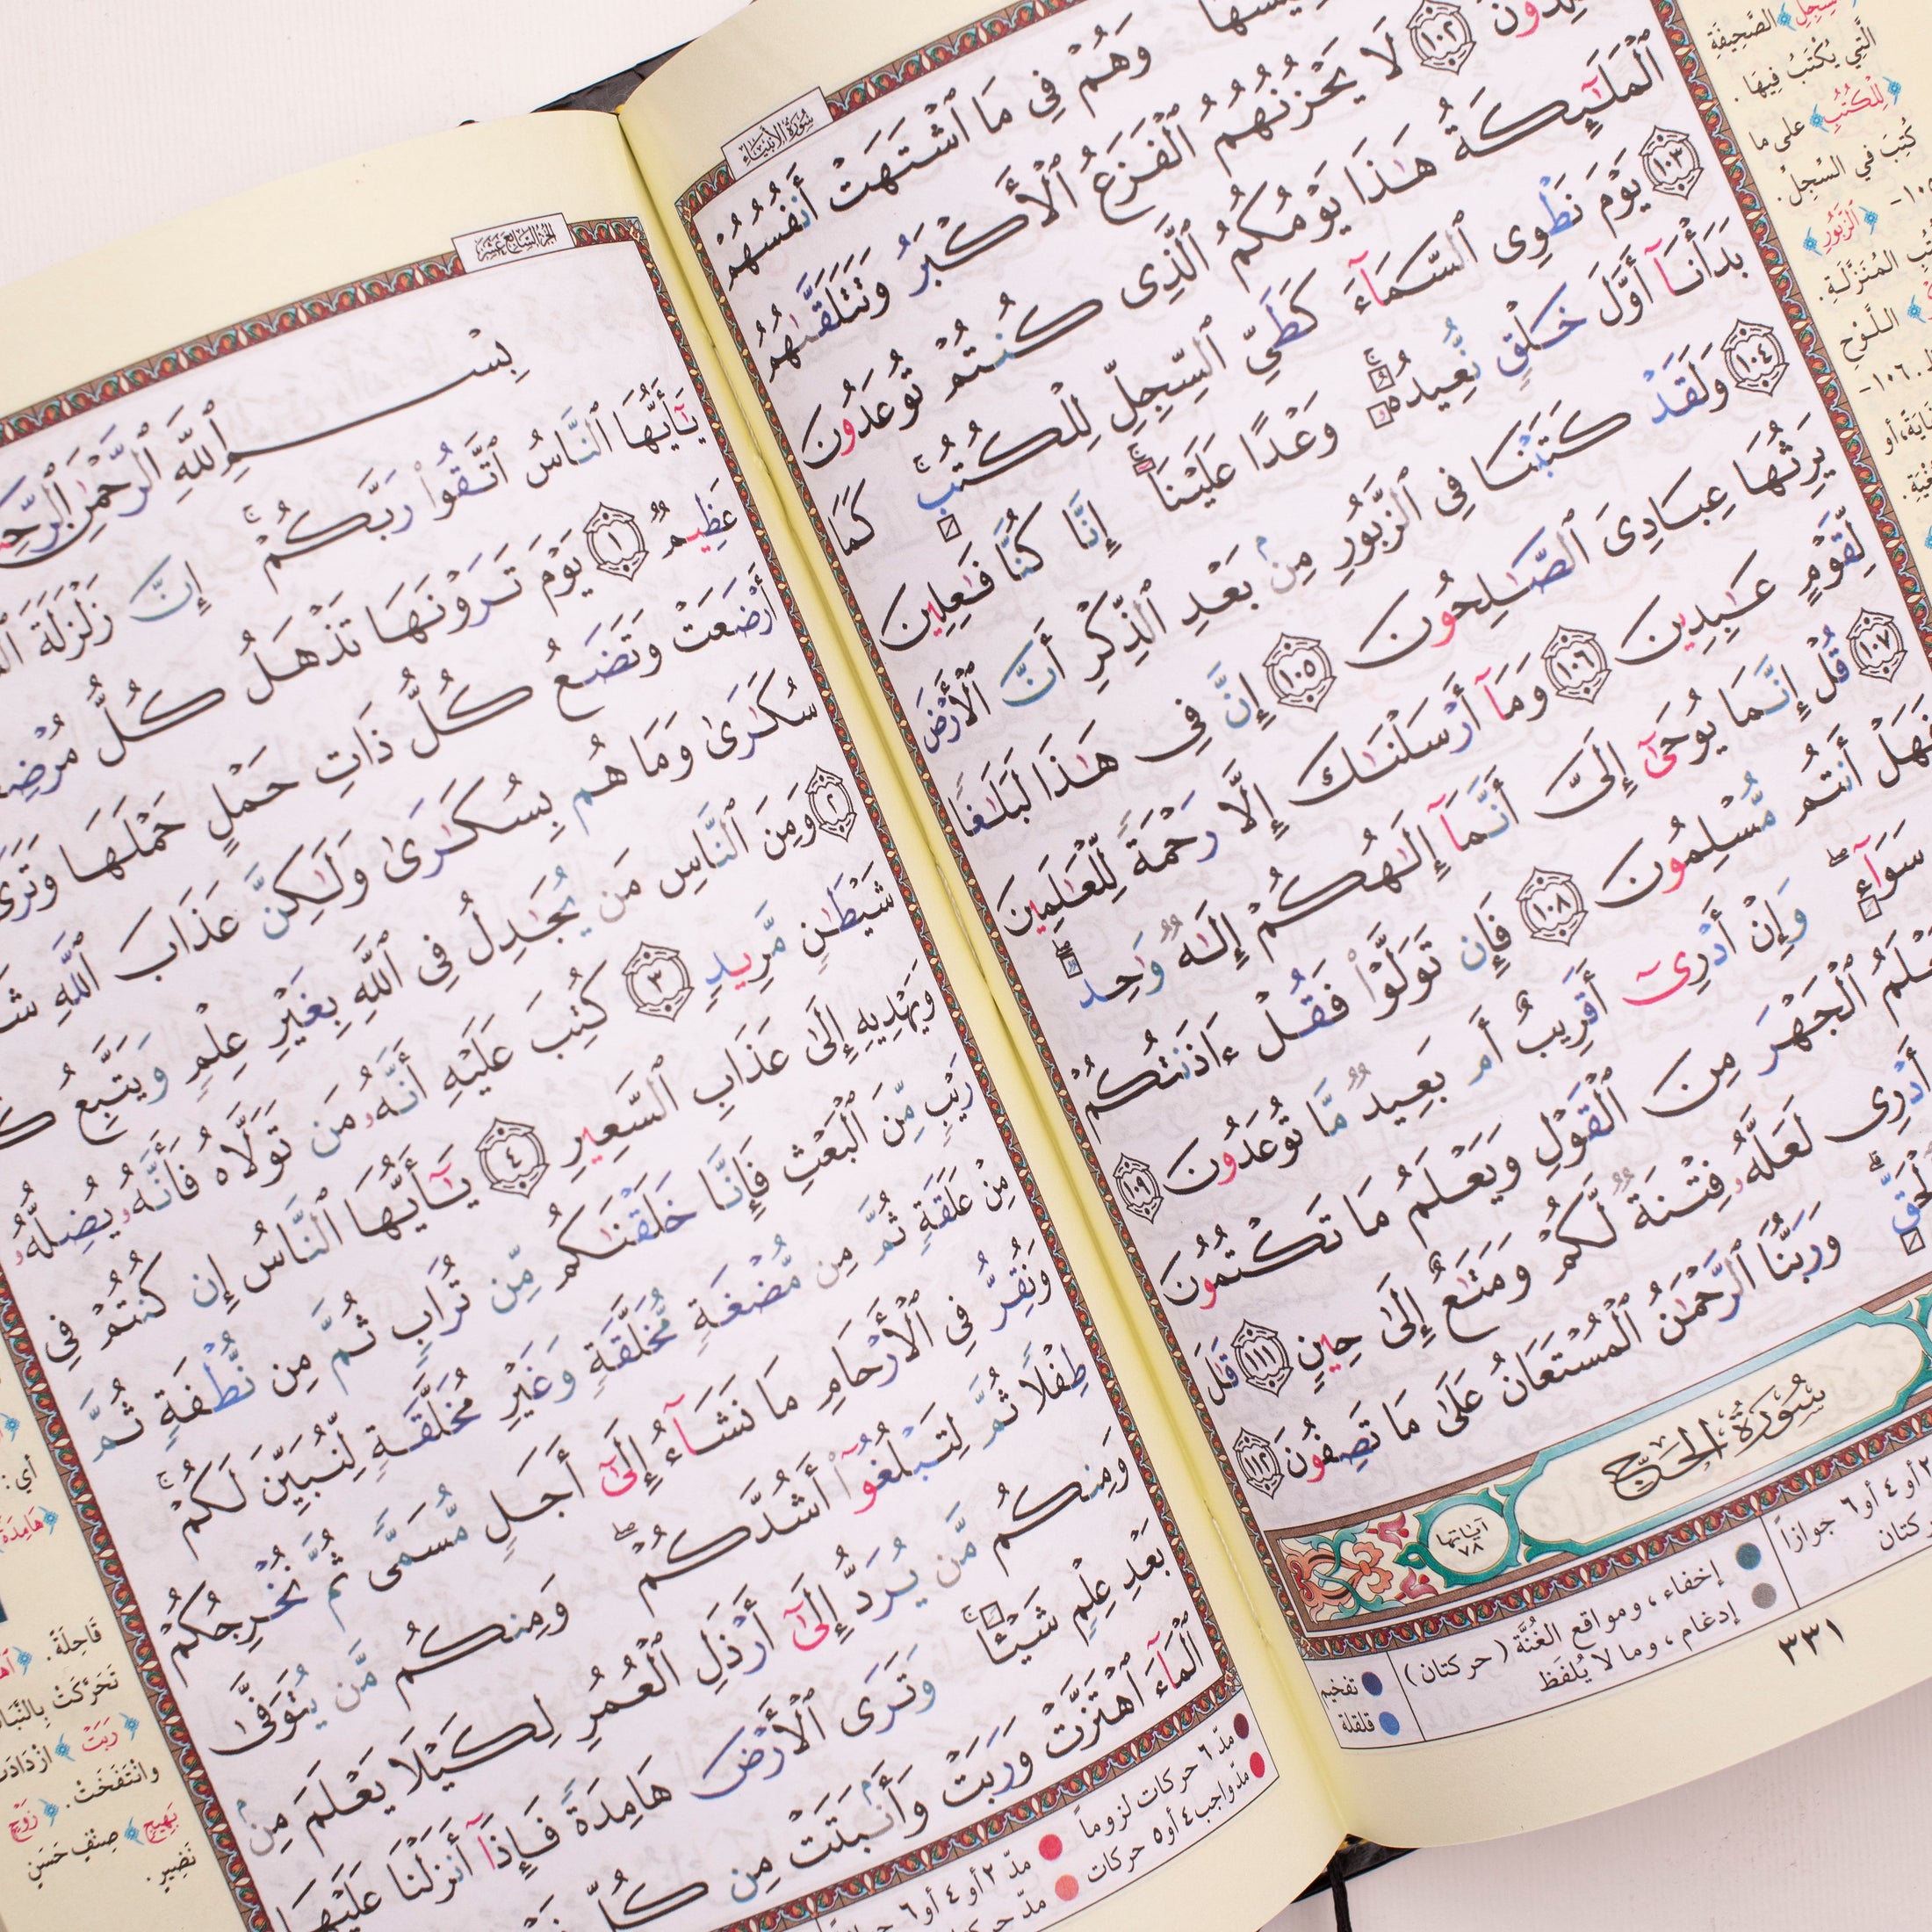 سُورَةُ الأَنبِيَاء
وَهُمْ فِي مَا ٱشْتَهَتْ أَنفُسُهُمْ
١٠٢ لَا يَحْزُنُهُمُ ٱلْفَزَعُ ٱلْأَكْبَرُ وَتَتَلَقَّىٰهُمُ
ٱلْمَلَـٰٓئِكَةُ هَـٰذَا يَوْمُكُمُ ٱلَّذِى كُنتُمْ تُوعَدُونَ
١٠٣ يَوْمَ نَطْوِى ٱلسَّمَآءَ كَطَىِّ ٱلسِّجِلِّ لِلْكُتُبِ ۚ كَمَا
بَدَأْنَآ أَوَّلَ خَلْقٍ نُّعِيدُهُۥ ۚ وَعْدًا عَلَيْنَآ ۚ إِنَّا كُنَّا فَـٰعِلِينَ
١٠٤ وَلَقَدْ كَتَبْنَا فِى ٱلزَّبُورِ مِنۢ بَعْدِ ٱلذِّكْرِ أَنَّ ٱلْأَرْضَ
يَرِثُهَا عِبَادِىَ ٱلصَّـٰلِحُونَ ١٠٥ إِنَّ فِى هَـٰذَا لَبَلَـٰغًا
لِّقَوْمٍ عَـٰبِدِينَ ١٠٦ وَمَآ أَرْسَلْنَـٰكَ إِلَّا رَحْمَةً لِّلْعَـٰلَمِينَ
١٠٧ قُلْ إِنَّمَا يُوحَىٰٓ إِلَىَّ أَنَّمَآ إِلَـٰهُكُمْ إِلَـٰهٌ وَٰحِدٌ ۖ
فَهَلْ أَنتُم مُّسْلِمُونَ ١٠٨ فَإِن تَوَلَّوْا۟ فَقُلْ ءَاذَنتُكُمْ
سَوَآءٍ ۖ وَإِنْ أَدْرِىٓ أَقَرِيبٌ أَم بَعِيدٌ مَّا تُوعَدُونَ ١٠٩
ٱلْجَهْرَ مِنَ ٱلْقَوْلِ وَيَعْلَمُ مَا تَكْتُمُونَ
أَدْرِى لَعَلَّهُۥ فِتْنَةٌ لَّكُمْ وَمَتَـٰعٌ إِلَىٰ حِينٍ ١١١ قَـٰلَ
وَرَبُّنَا ٱلرَّحْمَـٰنُ ٱلْمُسْتَعَانُ عَلَىٰ مَا تَصِفُونَ ١١٢
سُورَةُ الحَجّ
آياتها
٧٨
إخفاء ، ومواقع الغُنَّة ( حركتان )
إدغام ، وما لا يُلفَظ
تفخيم
قلقلة
أو ٤ أو ٦ جوازاً
٣٣١
الصَّحِيفَةِ
الَّتِي يُكْتَبُ فِيهَا .
﴿لِلْكُتُبِ﴾ على ما
كُتِبَ في السِّجِلِّ.
﴿الزَّبُورِ﴾
المُنَزَّلَةِ.
اللَّوْحِ
الجُزْءُ السَّابِعَ عَشَر
بِسْمِ ٱللَّهِ ٱلرَّحْمَـٰنِ
يَـٰٓأَيُّهَا ٱلنَّاسُ ٱتَّقُوا۟ رَبَّكُمْ ۚ إِنَّ زَلْزَلَةَ
عَظِيمٌ ١ يَوْمَ تَرَوْنَهَا تَذْهَلُ كُلُّ
أَرْضَعَتْ وَتَضَعُ كُلُّ ذَاتِ حَمْلٍ حَمْلَهَا وَتَرَى
سُكَـٰرَىٰ وَمَا هُم بِسُكَـٰرَىٰ وَلَـٰكِنَّ عَذَابَ ٱللَّهِ
٢ وَمِنَ ٱلنَّاسِ مَن يُجَـٰدِلُ فِى ٱللَّهِ بِغَيْرِ عِلْمٍ وَيَتَّبِعُ
شَيْطَـٰنٍ مَّرِيدٍ ٣ كُتِبَ عَلَيْهِ أَنَّهُۥ مَن تَوَلَّاهُ فَأَنَّهُۥ يُضِلُّهُۥ
وَيَهْدِيهِ إِلَىٰ عَذَابِ ٱلسَّعِيرِ ٤ يَـٰٓأَيُّهَا ٱلنَّاسُ إِن كُنتُمْ فِى
رَيْبٍ مِّنَ ٱلْبَعْثِ فَإِنَّا خَلَقْنَـٰكُم مِّن تُرَابٍ ثُمَّ مِن نُّطْفَةٍ ثُمَّ
مِنْ عَلَقَةٍ ثُمَّ مِن مُّضْغَةٍ مُّخَلَّقَةٍ وَغَيْرِ مُخَلَّقَةٍ لِّنُبَيِّنَ لَكُمْ ۚ
وَنُقِرُّ فِى ٱلْأَرْحَامِ مَا نَشَآءُ إِلَىٰٓ أَجَلٍ مُّسَمًّى ثُمَّ نُخْرِجُكُمْ
طِفْلًا ثُمَّ لِتَبْلُغُوٓا۟ أَشُدَّكُمْ ۖ وَمِنكُم مَّن يُتَوَفَّىٰ
وَمِنكُم مَّن يُرَدُّ إِلَىٰٓ أَرْذَلِ ٱلْعُمُرِ لِكَيْلَا يَعْلَمَ مِنۢ
بَعْدِ عِلْمٍ شَيْـًٔا ۚ وَتَرَى ٱلْأَرْضَ هَامِدَةً فَإِذَآ أَنزَلْنَا عَلَيْهَا
ٱلْمَآءَ ٱهْتَزَّتْ وَرَبَتْ وَأَنۢبَتَتْ مِن كُلِّ
مدّ ٦ حركات لزوماً
مدّ واجب ٤ أو ٥ حركات
مدّ ٢ أو ٤ أو ٦
أي:
قَاحِلَةً.
تَحَرَّكَتْ
﴿رَبَتْ﴾
وانْتَفَخَتْ. ﴿زَوْجٍ﴾
﴿بَهِيجٍ﴾ صِنْفٍ حَسَنٍ
نَضِيرٍ.